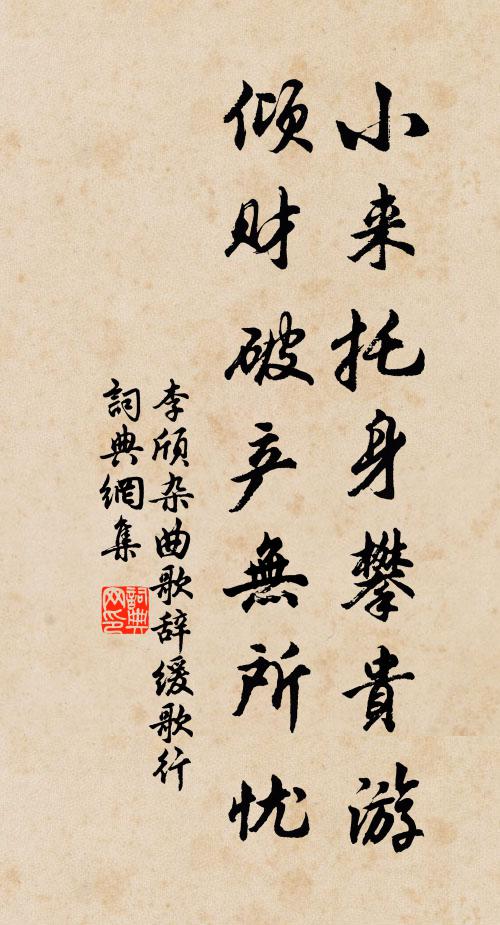 小来托身攀貴游
倾财破产無所忧
李颀杂曲歌辞缓歌行
詞典網集
詞典网印